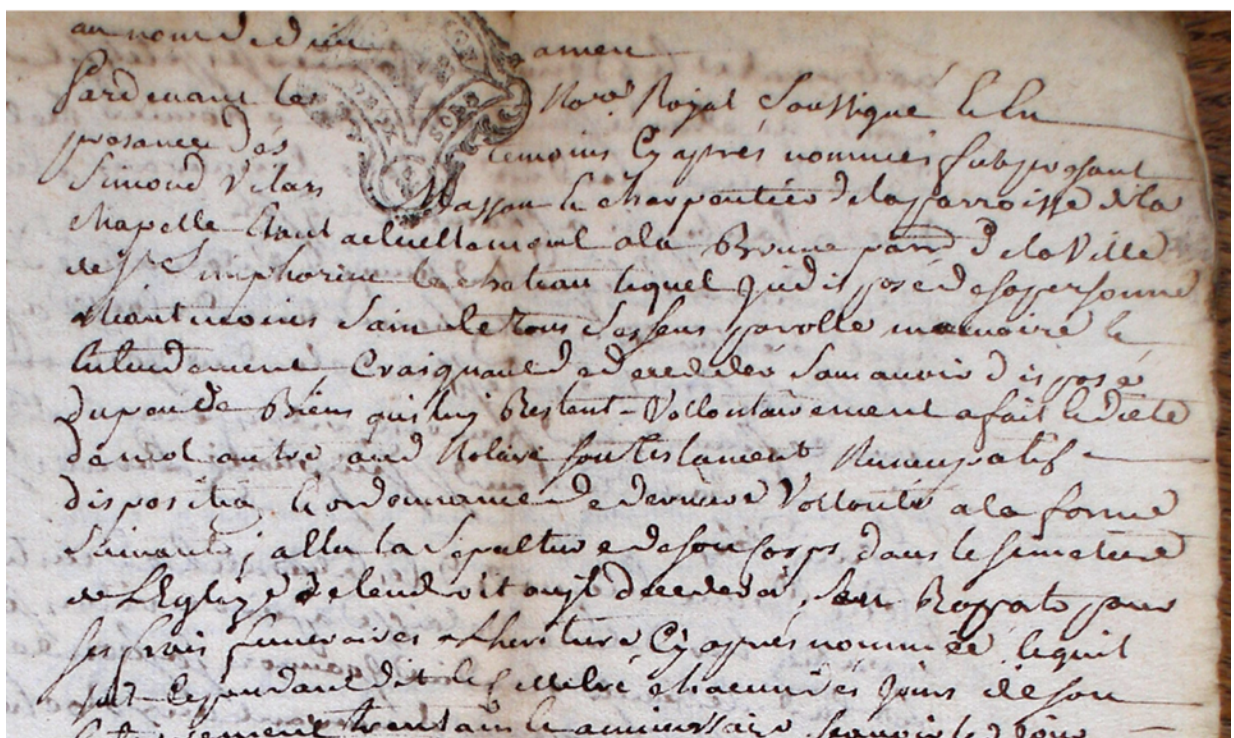 au nom de dieu amen
Pardevant les No.re Royal Soussigné Et En
presance des temoins Cy apres nommes fut present
Simond Vilars Masson Et charpentier de la parroisse de la
chapelle Etant actuellement a la parr. de la Ville
de St Simphorien le chateau lequel Indisposé de sa personne
neantmoins Sain de tous Ses sens parolle memoire Et
Entendement Craignant de decedder Sans avoir disposé
du peu de Biens qui luy Restent Vollontairement a fait Et dicté
de mot autre aud Notaire son testament Nuncupatif
disposition Et ordonnance de derniere Vollonté a la forme
Suivante; la Sepulture de son Corps dans le simetiere
de L'Eglize de lendroit ou il deceddera, Sen Rapporte pour
ses frais funeraires a Lheritiere Cy apres nommée, lequil
Cependant dit Et Cellebré chacun des jours de son
Enterrement trentain Et anniversaire scavoir